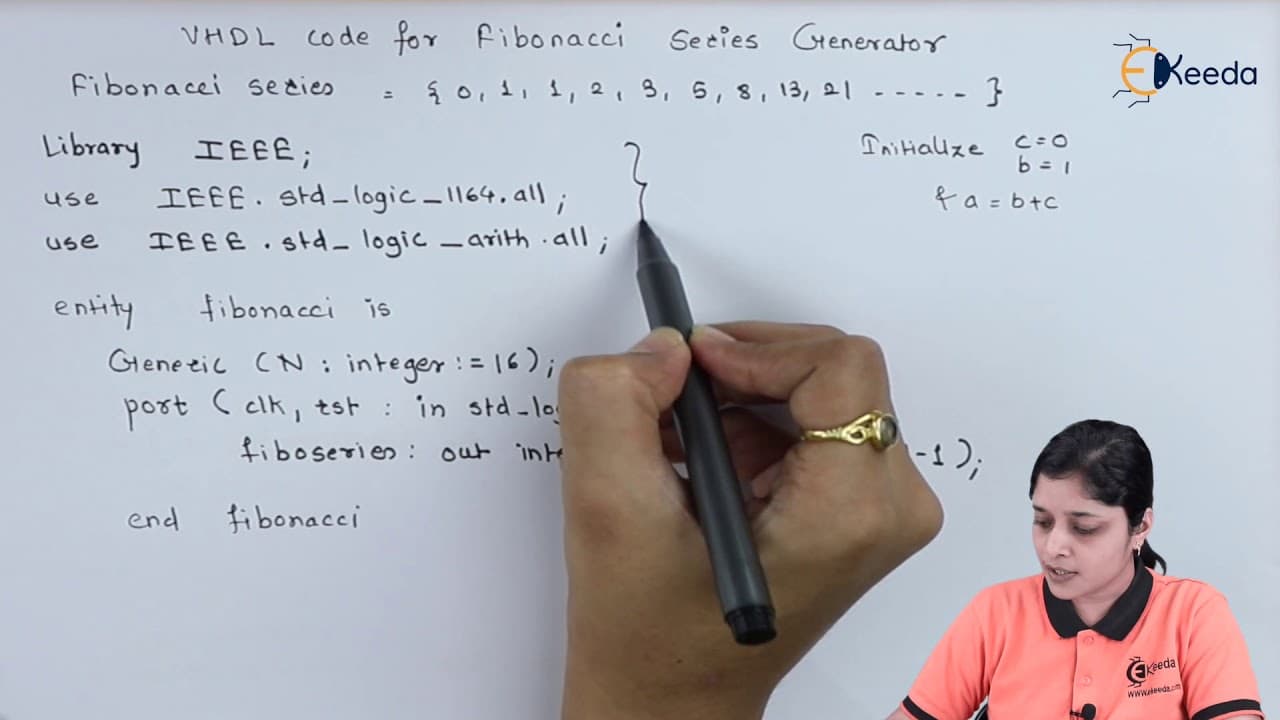 VHDL code for Fibonacci Series Generator
Fibonacci series = { 0, 1, 1, 2, 3, 5, 8, 13, 21 ----- }
Library IEEE;
use IEEE.std_logic_1164.all;
use IEEE.std_logic_arith.all;
entity fibonacci is
Generic (N : integer := 16);
port ( clk, rst : in std_lo
fiboseries : out inte -1);
end fibonacci
Initialize c=0
b=1
& a = b+c
EKeeda
EKeeda
www.ekeeda.com